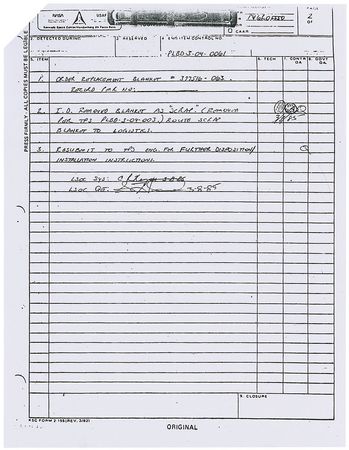 NASA
USAF
PAGE
2
OF
2. DETECTED DURING
3. RESERVED
4. ENG ITEM CONTROL NO.
CAAR
PLBD-3-04-0061
5. ITEM
6. TECH
7. CONTR QA
8. GOVT QA
PRESS FIRMLY - ALL COPIES MUST BE LEGIBLE
1. ORDER REPLACEMENT BLANKET # 397516-063.
RECORD PAR NO:
2. I.D. REMOVED BLANKET AS "SCRAP" (REMOVED
PER TPS PLBD-3-04-003.) ROUTE SCRAP
BLANKET TO LOGISTICS.
3. RESUBMIT TO TPS ENG. FOR FURTHER DISPOSITION/
INSTALLATION INSTRUCTIONS.
LSOC SYS:
LSOC QE: 3-8-85
9. CLOSURE
KSC FORM 2-155 (REV. 3/82)
ORIGINAL